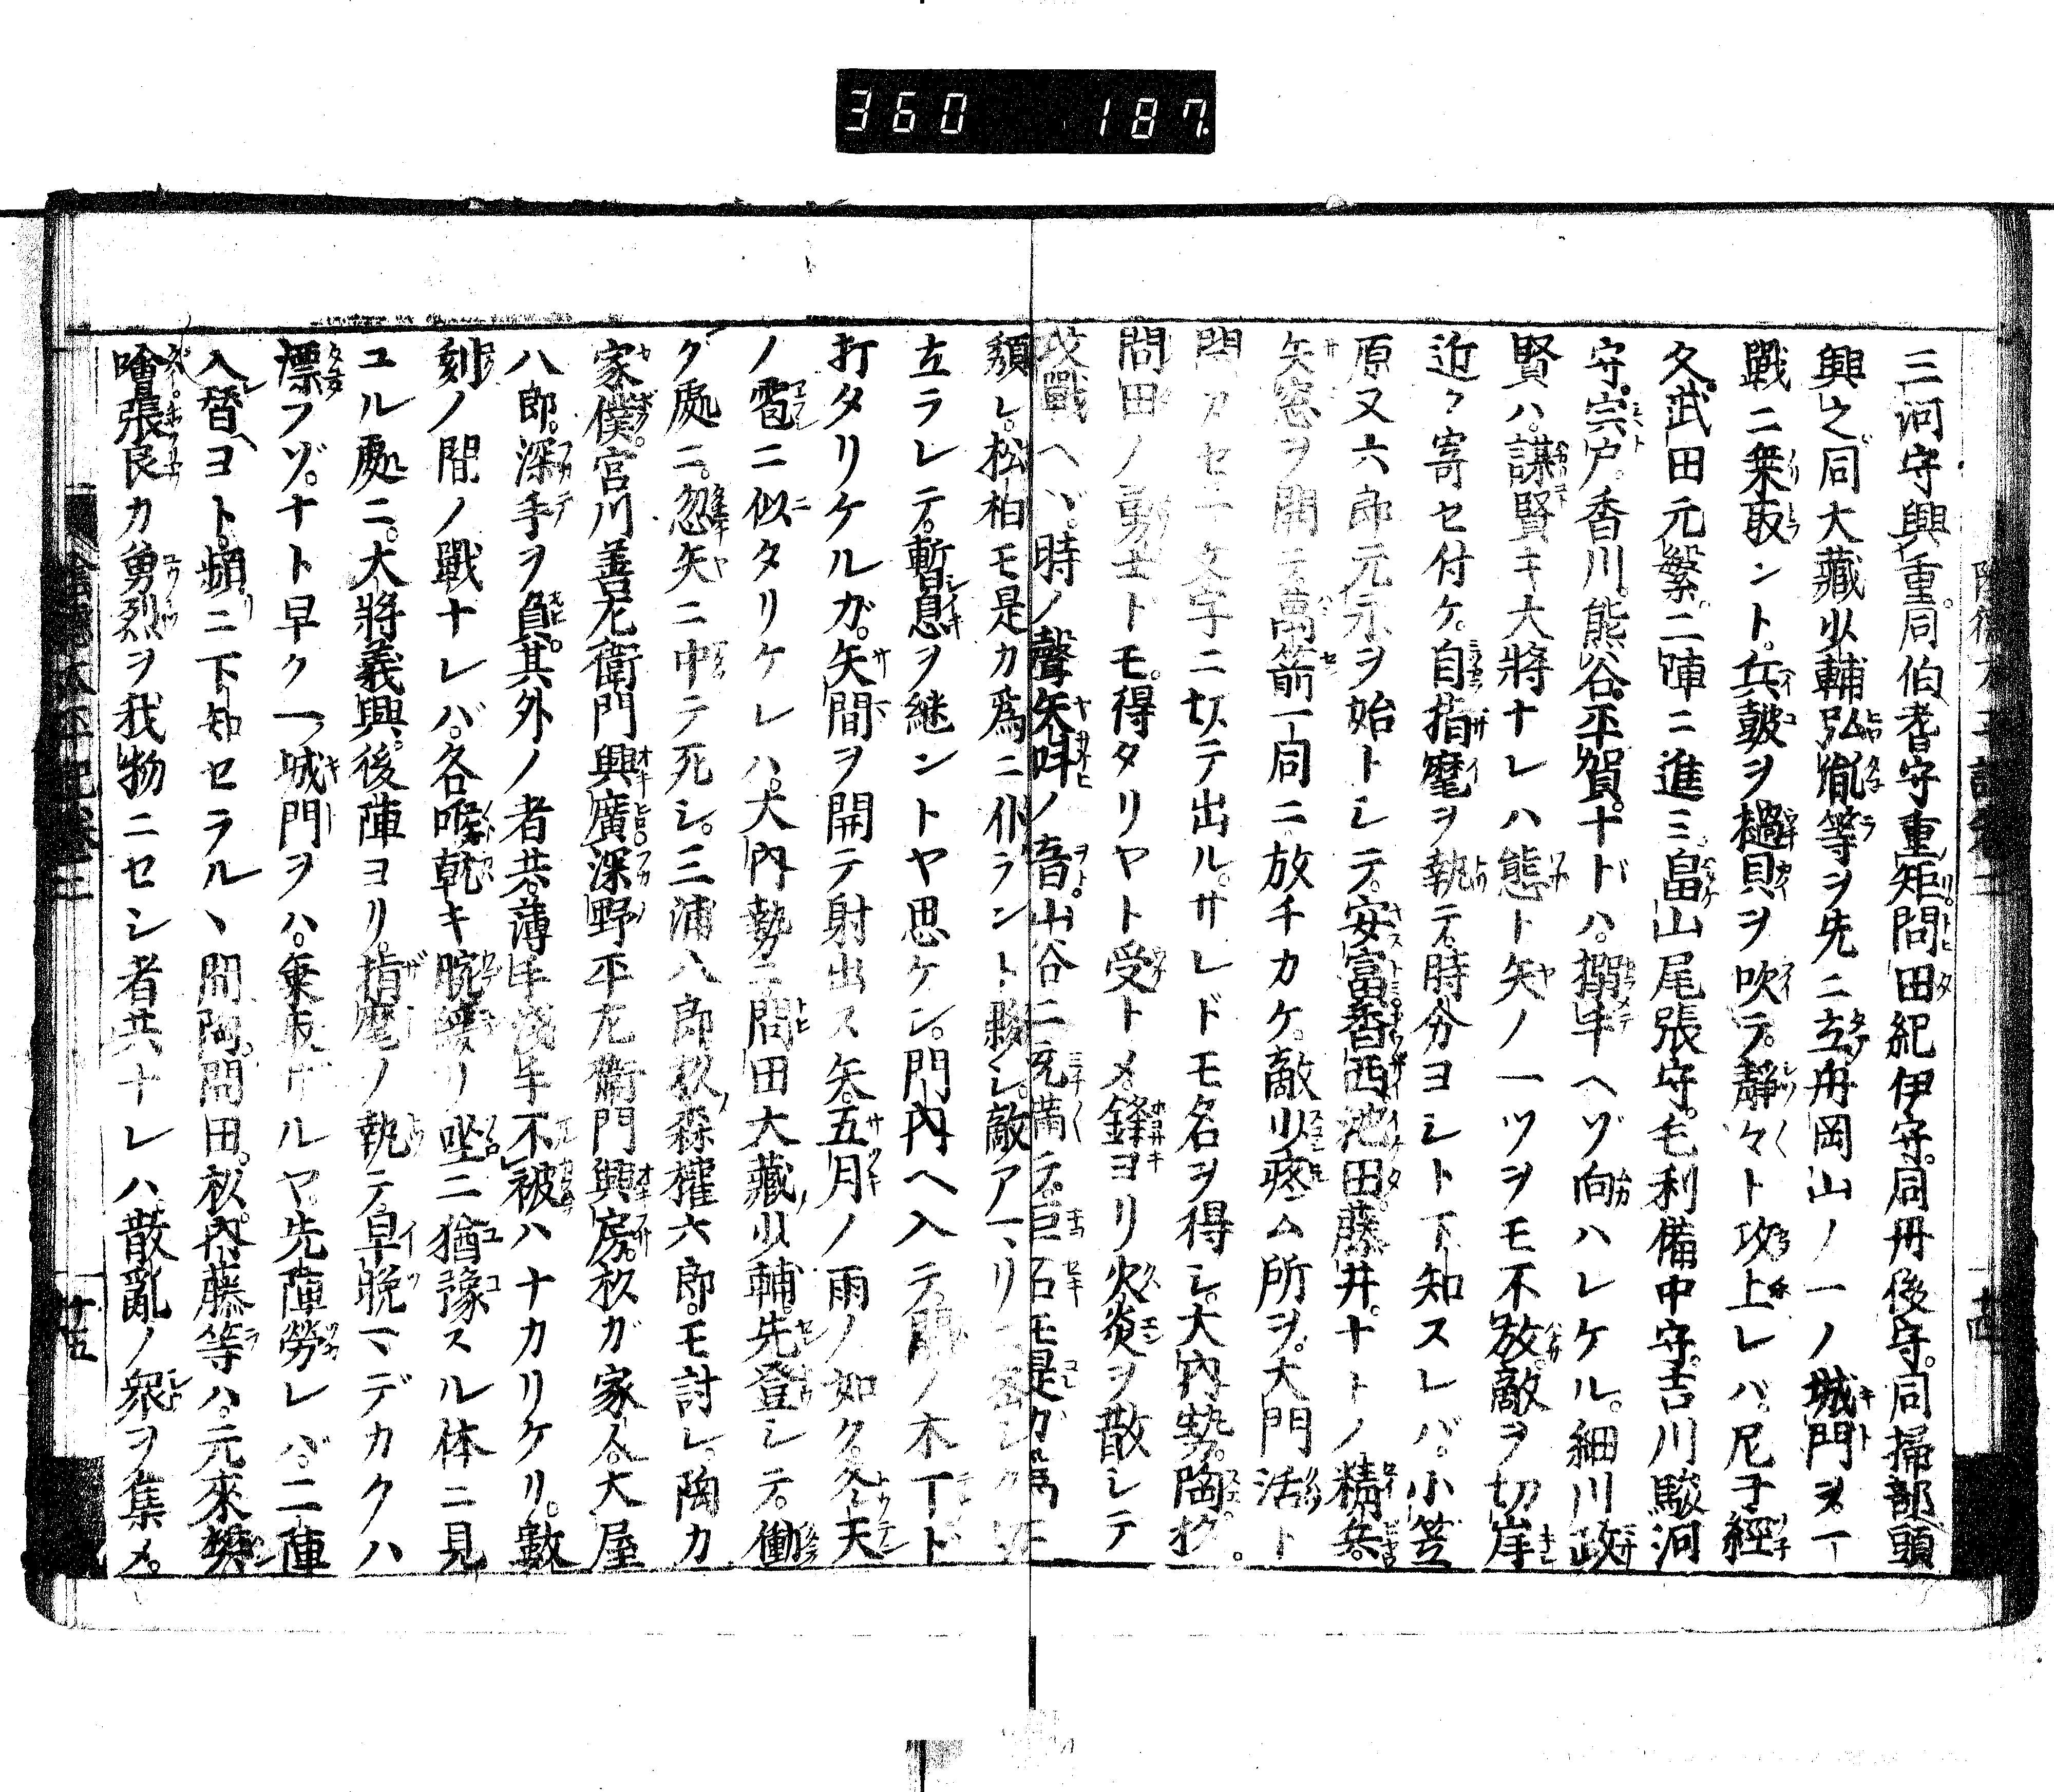 360 187
三河守興重。同伯耆守重矩。問田紀伊守。同丹後守。同掃部頭
興之。同大藏少輔弘胤等ヲ先ニ立。舟岡山ノ一ノ城門ヲ一
戰ニ乗取ント。兵皷ヲ撾貝ヲ吹テ。靜々ト攻上レバ。尼子經
久。武田元繁。二陣ニ進ミ。畠山尾張守。毛利備中守。吉川駿河
守。宗戸。香川。熊谷。平賀。ナドハ。搦手ヘゾ向ハレケル。細川政
賢ハ。謀賢キ大將ナレハ態ト矢ノ一ツヲモ不放。敵ヲ切岸
近ク寄セ付ケ。自指麾ヲ執テ。時分ヨシト下知スレバ。小笠
原又六郎元宗ヲ始トシテ。安富香西池田藤井。ナトノ精兵。
矢窓ヲ開テ萬箭一同ニ放チカケ。敵少疼ム所ヲ。大門活ト
開カセ一文字ニ切テ出ル。サレドモ名ヲ得シ。大内勢。陶杉。
問田ノ勇士ドモ。得タリヤト受トメ。鋒ヨリ火炎ヲ散シテ
攻戰ヘバ。時ノ聲矢叫ノ音。山谷ニ充滿テ。巨石モ是カ爲ニ
頽レ。松柏モ是カ爲ニ仆ラント夥シ。敵アマリニ密シク切
立ラレテ。暫息ヲ継ントヤ思ケン。門内ヘ入テ。關ノ木丁ド
打タリケルガ。矢間ヲ開テ射出ス矢。五月ノ雨ノ如ク。冬天
ノ雹ニ似タリケレハ。大内勢ニ問田大藏少輔。先登シテ。働
ク處ニ。忽矢ニ中テ死シ。三浦八郎杉森權六郎。モ討レ。陶カ
家僕。宮川善左衛門興廣。深野平左衛門興房。杉ガ家人。大屋
八郎。深手ヲ負。其外ノ者共。薄手淺手不被ハナカリケリ。數
刻ノ間ノ戰ナレバ。各喉乾キ腕緩リ坐ニ猶豫スル体ニ見
ユル處ニ。大將義興。後陣ヨリ。指麾ノ執テ。早晩マデカクハ
漂フゾ。ナト早ク一ノ城門ヲハ。乗取ザルヤ。先陣勞レバ。二陣
入替ヨト。頻ニ下知セラル丶間。陶。問田。杉。内藤等ハ。元來樊
噲。張良カ勇烈ヲ我物ニセシ者共ナレハ散亂ノ衆ヲ集メ。